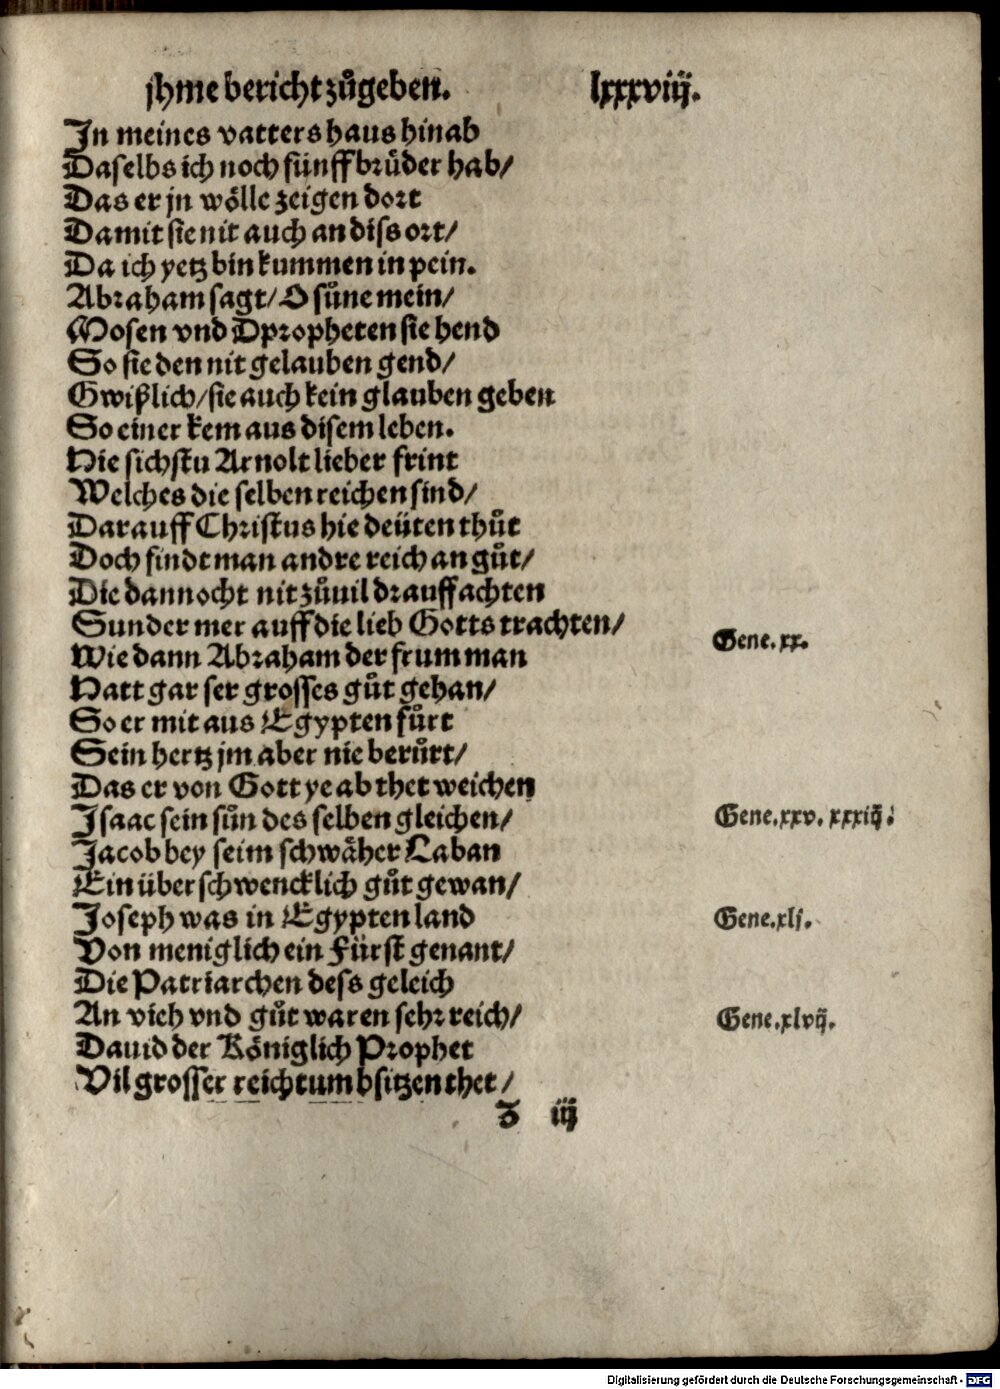 jhme bericht zůgeben. lxxxviij.
In meines vatters haus hinab
Daselbs ich noch fünff brůder hab/
Das er jn wölle zeigen dort
Damit sie nit auch an diss ort/
Da ich yetz bin kummen in pein.
Abraham sagt/ O sůne mein/
Mosen vnd Dpropheten sie hend
So sie den nit gelauben gend/
Gwißlich/ sie auch kein glauben geben
So einer kem aus disem leben.
Hie sichstu Arnolt lieber frint
Welches die selben reichen sind/
Darauff Christus hie deüten thůt
Doch findt man andre reich an gůt/
Die dannocht nit zůuil drauff achten
Sunder mer auff die lieb Gotts trachten/
Wie dann Abraham der frum man
Gene.xx.
Hatt gar ser grosses gůt gehan/
So er mit aus Egypten fůrt
Sein hertz jm aber nie berůrt/
Das er von Gott ye ab thet weichen
Isaac sein sůn des selben gleichen/
Gene.xxv. xxxiij.
Jacob bey seim schwäher Laban
Ein überschwencklich gůt gewan/
Joseph was in Egypten land
Gene.xlj.
Von meniglich ein Fürst genant/
Die Patriarchen dess geleich
An vich vnd gůt waren sehr reich/
Gene.xlvij.
Dauid der Königlich Prophet
Vil grosser reichtum bsitzen thet/
z iij
Digitalisierung gefördert durch die Deutsche Forschungsgemeinschaft - DFG